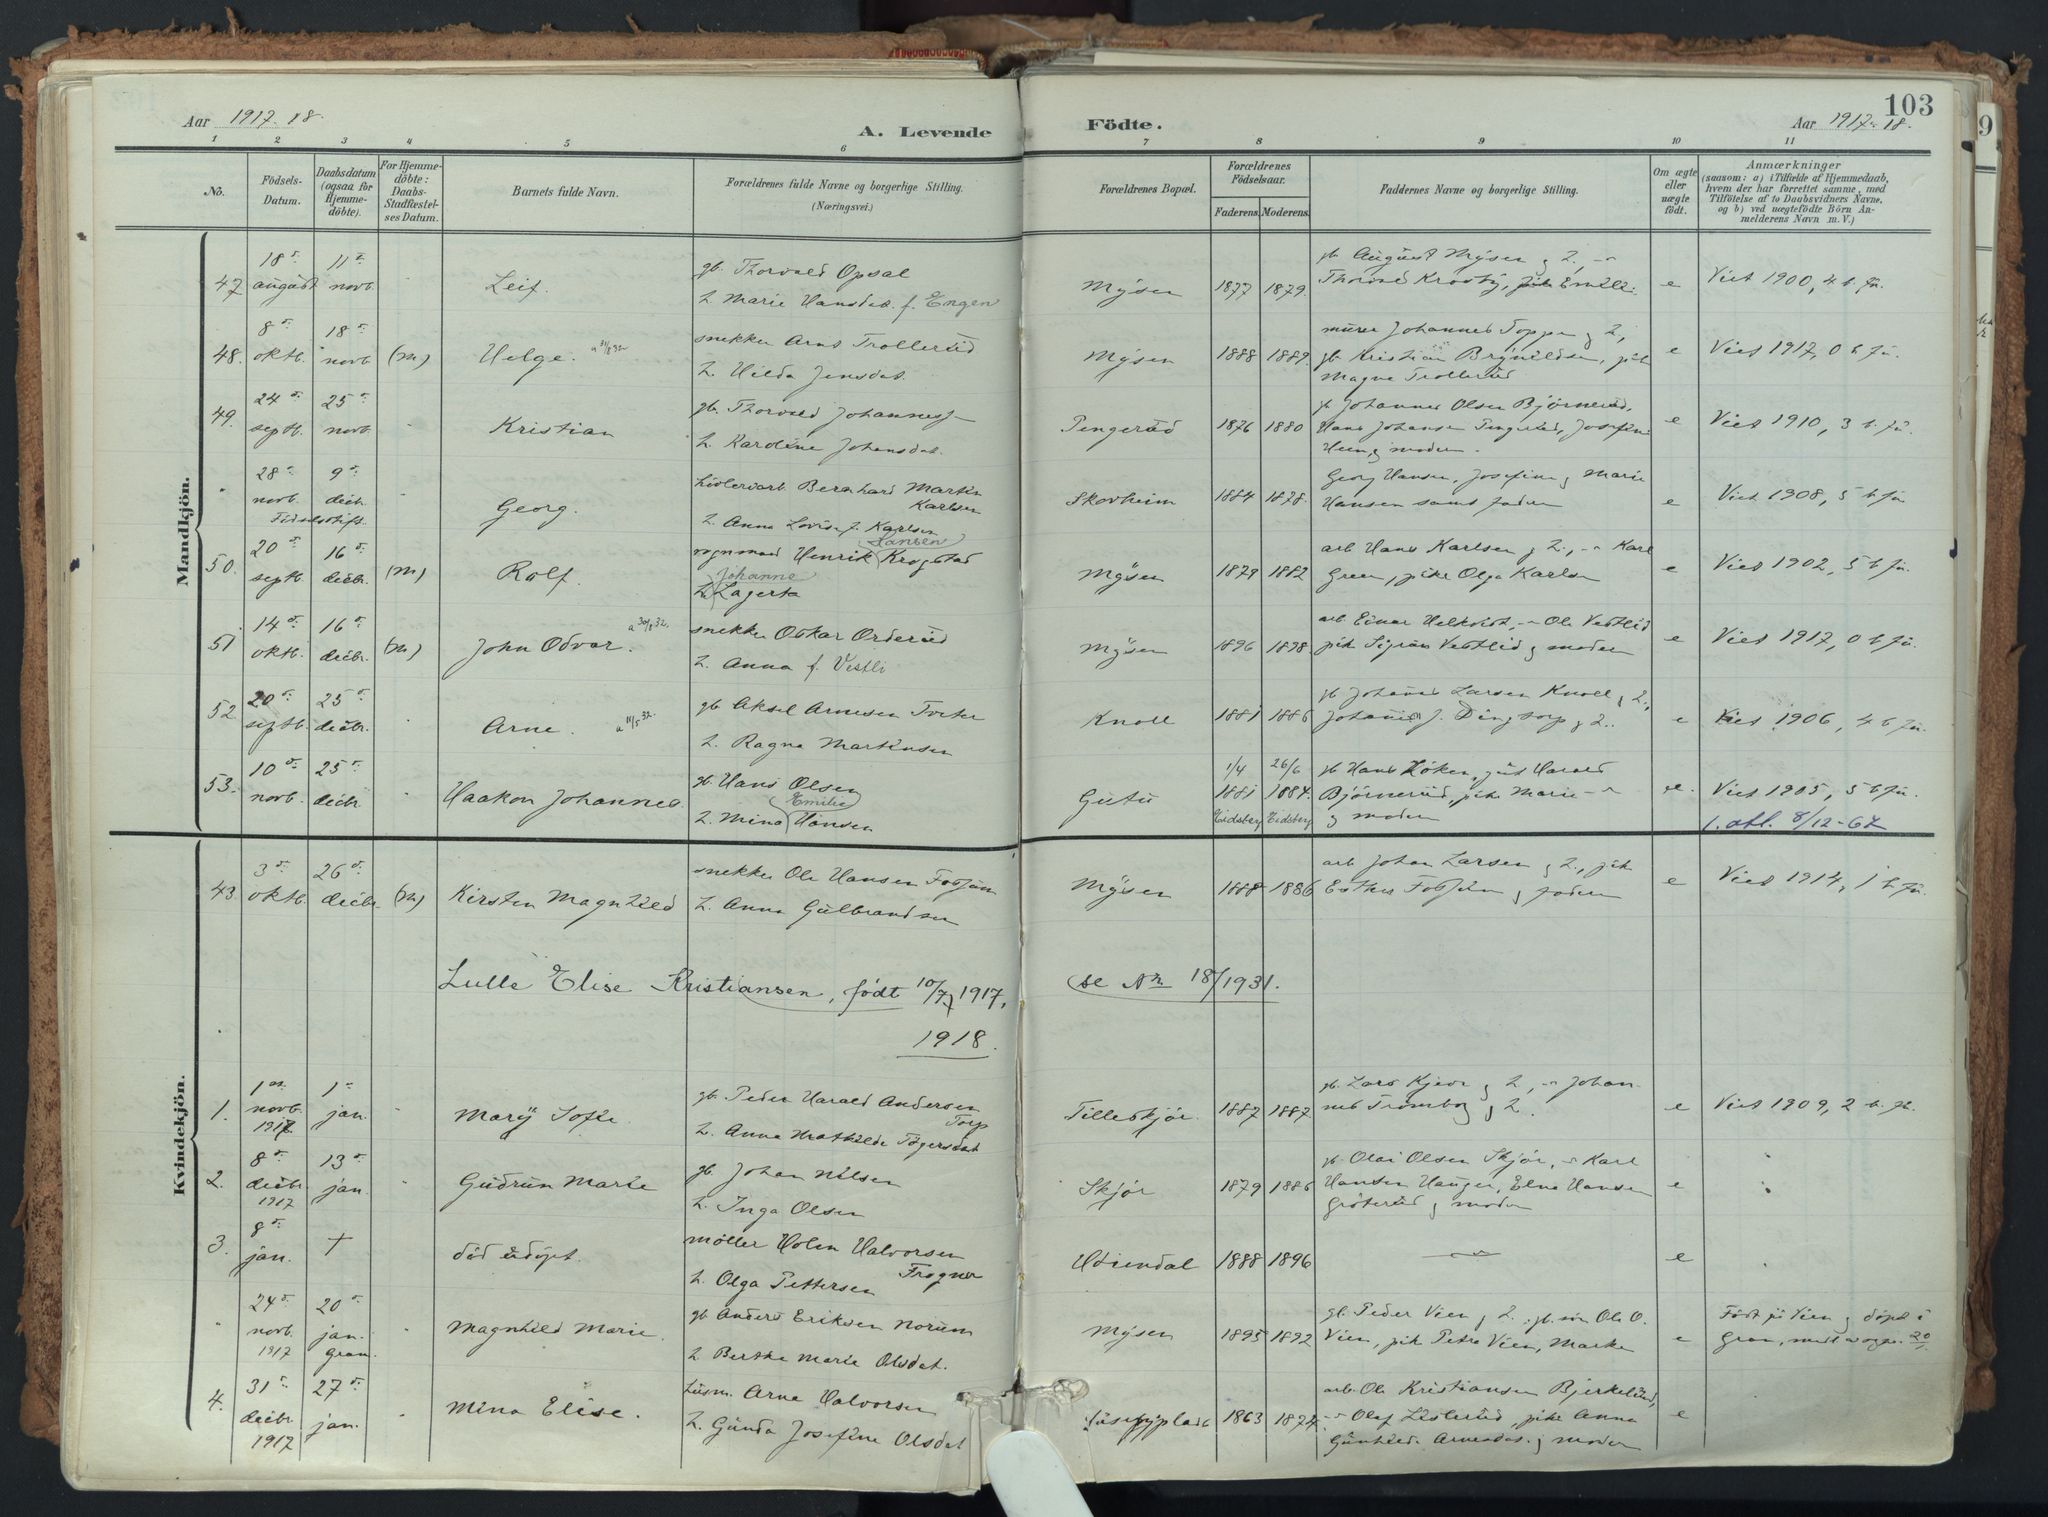 Aar 1917-18.
A. Levende
Födte.
Aar 1917-18.
103
1 2 3 4 5 6 7 8 9 10 11
No.
Födsels-
Datum.
Daabsdatum
(ogsaa for
Hjemme-
döbte).
For Hjemme-
döbte:
Daabs-
Stadfæstel-
ses Datum.
Barnets fulde Navn.
Forældrenes fulde Navne og borgerlige Stilling.
(Næringsvei.)
Forældrenes Bopæl.
Forældrenes
Födselsaar.
Faderens. Moderens.
Faddernes Navne og borgerlige Stilling.
Om ægte
eller
uægte
født.
Anmærkninger
(saasom: a) i Tilfælde af Hjemmedaab,
hvem der har forrettet samme, med
Tilföielse af to Daabsvidners Navne,
og b) ved uægtefödte Börn An-
melderens Navn m. V.)
Mandkjön.
47 18de august 11te novb. Leif.
gb. Thorvald Opsal
h. Marie Hansdat. f. Engen
Mysen 1877 1879
gb. August Mysen & h.,
e Viet 1900, 4 b. fü.
48. 8de oktb. 18de novb (m) Helge. a 31/8 32
snekker Arns Trollerud
h. Hilda Jensdat.
Mysen 1888 1889.
murer Johannes Toppe & h.,
gb. Kristian Brynildsen, pik
Magna Trollerud
e Viet 1917, 0 b fü.
49. 24de septb. 25de novb. Kristian
gb. Thorvald Johanness
h. Karoline Johansdat.
Pengerud 1876 1880
gb. Johannes Olsen Björnerud,
Hans Johansen Pengerud, Josefine
Heen & moder.
e Viet 1910, 3 b. fü.
28de novb. 9de decb. Georg.
Fidelstift.
Bernhard Martin
Karlsen
h. Anna Lovise f. Karlsen
Skovheim 1884 1878.
Georg Hansen, Josefine & Marie
Hansen samt faderen
e Viet 1908, 5 b fü
50. 20de septb. 16de decbr. (m) Rolf.
Hansen
vognmand Henrik Krogstad
Johanne
h. Lagerta
Mysen 1879 1882
arb Hans Karlsen & h., Karl
Green, pike Olga Karlsen
e Viet 1902, 5 b fü.
51 14de oktb. 16de decbr. (m) John Odvar. a 30/8 32.
snekker Oskar Orderud
h. Anna f. Vestli
Mysen 1896 1898
arb Einar Helkvist, Ole Vestlid
pik Sigrun Vestlid & moderen
e Viet 1917, 0 b fü.
52 20de septb. 25de decbr. Arne. a 11/5 32.
gb Aksel Arnesen Tveter
h. Ragna Martinsen
Knoll 1881 1886
gb Johannes Larsen Knoll & h.,
Johannes J. Dingtorp & h..
e Viet 1906, 4 b fü.
53. 10de novb. 25de decbr Haakon Johannes.
gb Hans Olsen
Emilie
h. Mina Hansen
Gutu
1/4 1881 Eidsberg
26/6 1884. Eidsberg
gb Hans Höken, gut Harald
Björnerud, pike Marie
& moderen
e. Viet 1905, 5 b fü.
1. att. 8/12-67
Kvindekjön.
43. 3de oktb. 26de decbr (m) Kirsten Magnhild
snekker Ole Hansen Fossum
h. Anna Gulbrandsen
Mysen 1888 1886
arb Johan Larsen & h., pik
Esther Fossum & faderen
e Viet 1914, 1 b fü.
Lulle Elise Kristiansen, født 10/7 1917, se No 18/1931.
1918.
1. 1ste novb. 1917 1ste jan. Mary Sofie.
gb. Peder Harald Andersen
Torp
h. Anna Mathilde Tögersdat
Tilleskjør. 1887 1887
gb. Lars Kjeve & h., Johan-
nes Trömborg & h..
e Viet 1909, 2 b. fü.
2. 8de decbr 1917 13de jan. Gudrun Marie
gb. Johan Nilsen
h. Inga Olsen
Skjør 1879 1886
gb. Olai Olsen Skjør, Karl
Hansen Hauger, Elna Hansen
Gröterud & moder
e
3. 8de jan. † död udöpt.
möller Holm Halvorsen
Frogner
h. Olga Pettersen
1888 1896
e
24de novb. 1917 20de jan. Gran. Magnhild Marie.
gb Anders Eriksen Norum
h Berthe Marie Olsdat.
Mysen 1895 1892
gb. Peder Vien & h. gb. sön Ole O.
Vien, pik Petra Vien, Marka
e Født på Vien & döpt i
Gran, 20/1
4. 31te decbr 1917 27de jan. Mina Elise.
husm. Arne Halvorsen
h. Gunda Josefine Olsdat
1863 1874.
arb. Ole Kristiansen Bjerkelund,
Olaf Listerud, pike Anna
Gunhild Arnesdat. & moder
e